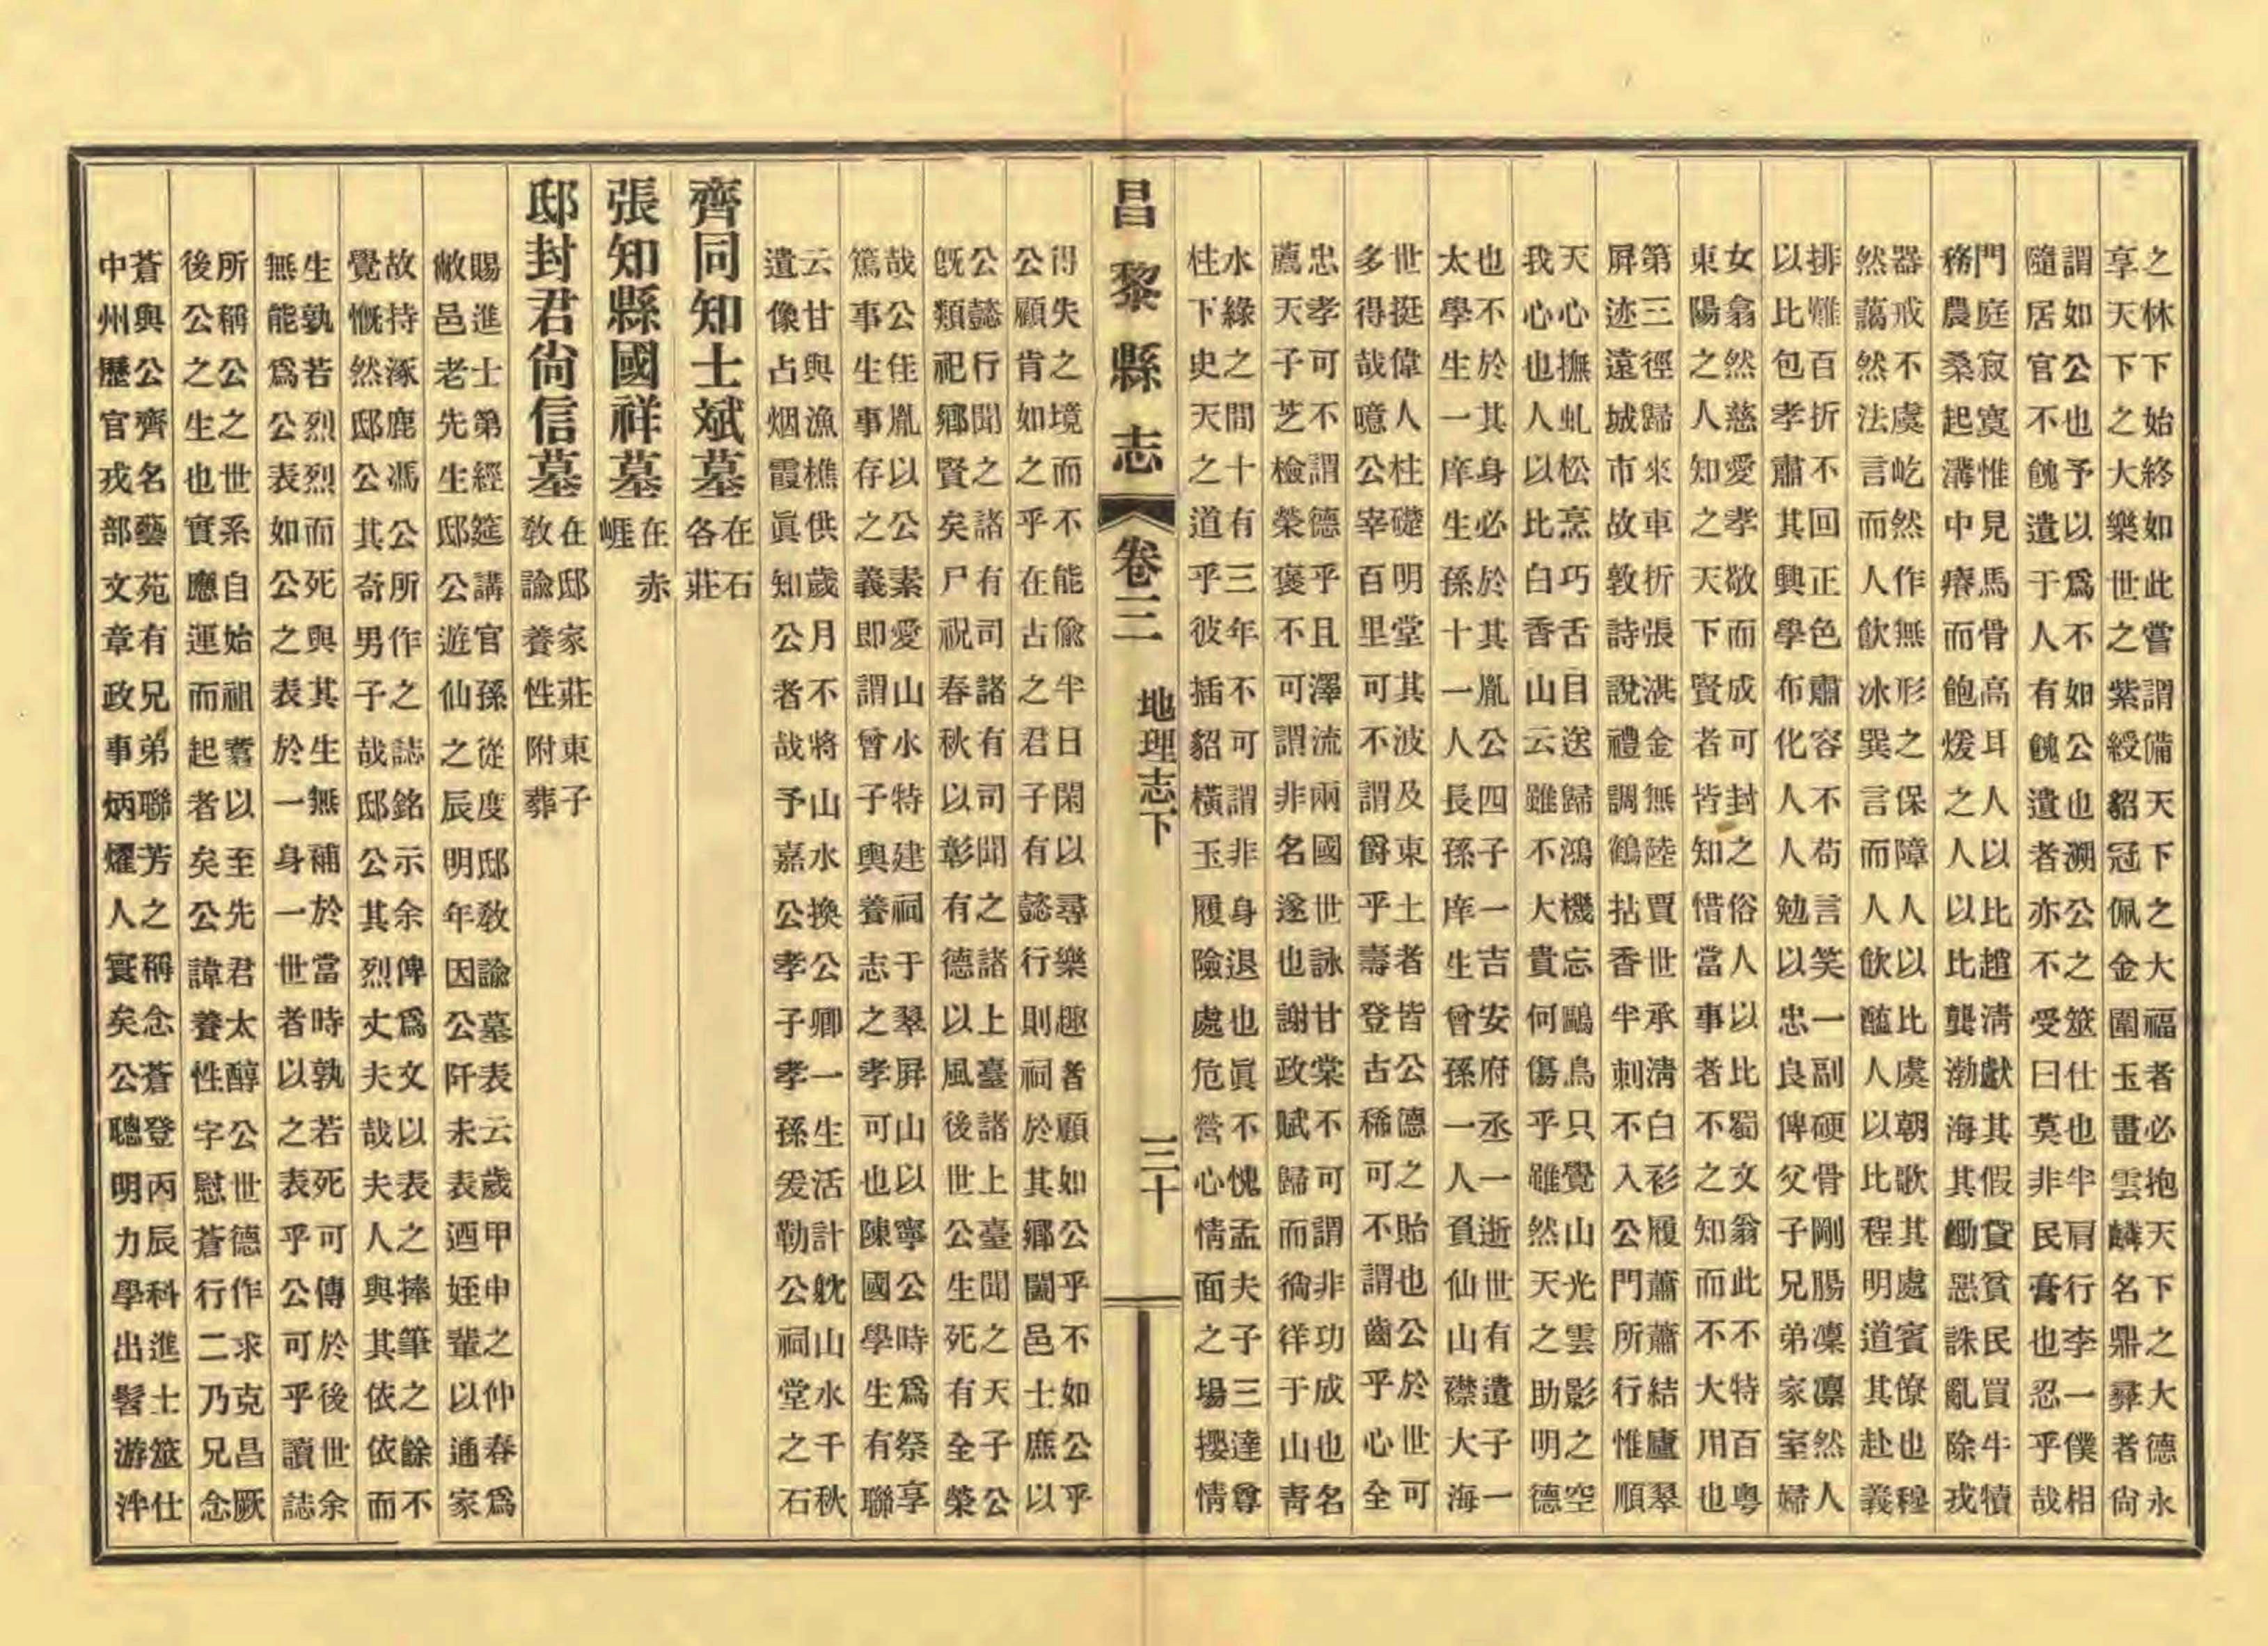 之林下始終如此嘗謂備天下之大福者必抱天下之大德永
享天下之大樂世之紫綬貂冠佩金圍玉畫雲麟名鼎彝者尙
謂如公也予以爲不如公也溯公之筮仕也半肩行李一僕相
隨居官不餽遺于人有餽遺者亦不受曰莫非民膏也忍乎哉
門庭寂寞惟見馬骨高耳人以比趙淸獻其假貸貧民買牛犢
務農桑起溝中瘠而飽煖之人以比龔渤海其勦惡誅亂除戎
器戒不虞屹然作無形之保障人以比虞朝歌其處賓僚也穆
然藹然法言而人飲冰巽言而人飲醯人以比程明道其赴義
排難百折不回正色肅容不苟言笑一副硬骨剛腸凜凜然人
以比包孝肅其興學布化人人勉以忠良俾父子兄弟家室婦
女翕然慈愛孝敬而成可封之俗人以比蜀文翁此不特百粵
東陽之人知之天下賢者皆知惜當事者不之知而不大用也
第三徑歸來車折張湛金無陸賈世承淸白衫履蕭蕭結廬翠
屏迹遠城市故敦詩說禮調鶴拈香半刺不入公門所行惟順
天心撫虬松烹巧舌目送歸鴻機忘鷗鳥只覺山光雲影之空
我心也人以比白香山云雖不大貴何傷乎雖然天之助明德
也不於其身必於其胤公四子一吉安府丞一逝世有遺子一
太學生一庠生孫十一人長孫庠生曾孫一人負仙山襟大海
世挺偉人柱礎明堂其波及東土者皆公德之貽也公於世可
多得哉噫公宰百里可不謂爵乎壽登古稀可不謂齒乎心全
忠孝可不謂德乎且澤流兩國世詠甘棠不可謂非功成也名
薦天子芝檢榮褒不可謂非名遂也謝政賦歸而徜徉于山靑
水綠之間十有三年不可謂非身退也眞不愧孟夫子三達尊
柱下史天之道乎彼插貂橫玉履險處危營心情面之塲攖情
昌黎縣志 卷三 地理志下 三十
得失之境而不能偷半日閑以尋樂趣者顧如公乎不如公乎
公顧肯如之乎在古之君子有懿行則祠於其鄉闔邑士庶以
公懿行聞之諸有司諸有司聞之諸上臺諸上臺聞之天子公
旣類祀鄉賢矣尸祝春秋以彰有德以風後世公生死有全榮
哉公佳胤以公素愛山水特建祠于翠屏山以寧公時爲祭享
篤事生事存之義即謂曾子輿養志之孝可也陳國學生有聯
云甘與漁樵供歲月不將山水換公卿一生活計躭山水千秋
遺像占烟霞眞知公者哉予嘉公孝子孝孫爰勒公祠堂之石
齊同知士斌墓 在石各莊
張知縣國祥墓 在赤崕
邸封君尙信墓 在邸家莊東子敎諭養性附葬
賜進士第經筵講官孫從度邸敎諭墓表云歲甲申之仲春爲
敝邑老先生邸公遊仙之辰明年因公阡未表迺姪輩以通家
故持涿鹿馮公所作之誌銘示余俾爲文以表之捧筆之餘不
覺慨然邸公其奇男子哉邸公其烈丈夫哉夫人與其依依而
生孰若烈烈而死與其生無補於當時孰若死可傳於後世余
無能爲公表如公之表於一身一世者以之表乎公可乎讀誌
所稱公之世系自始祖耆以至先君太醇公世德作求克昌厥
後公之生也實應運而起者矣公諱養性字慰蒼行二乃兄念
蒼與公齊名藝苑有兄弟聯芳之稱念蒼登丙辰科進士筮仕
中州歷官戎部文章政事炳燿人寰矣公聰明力學出髫游泮